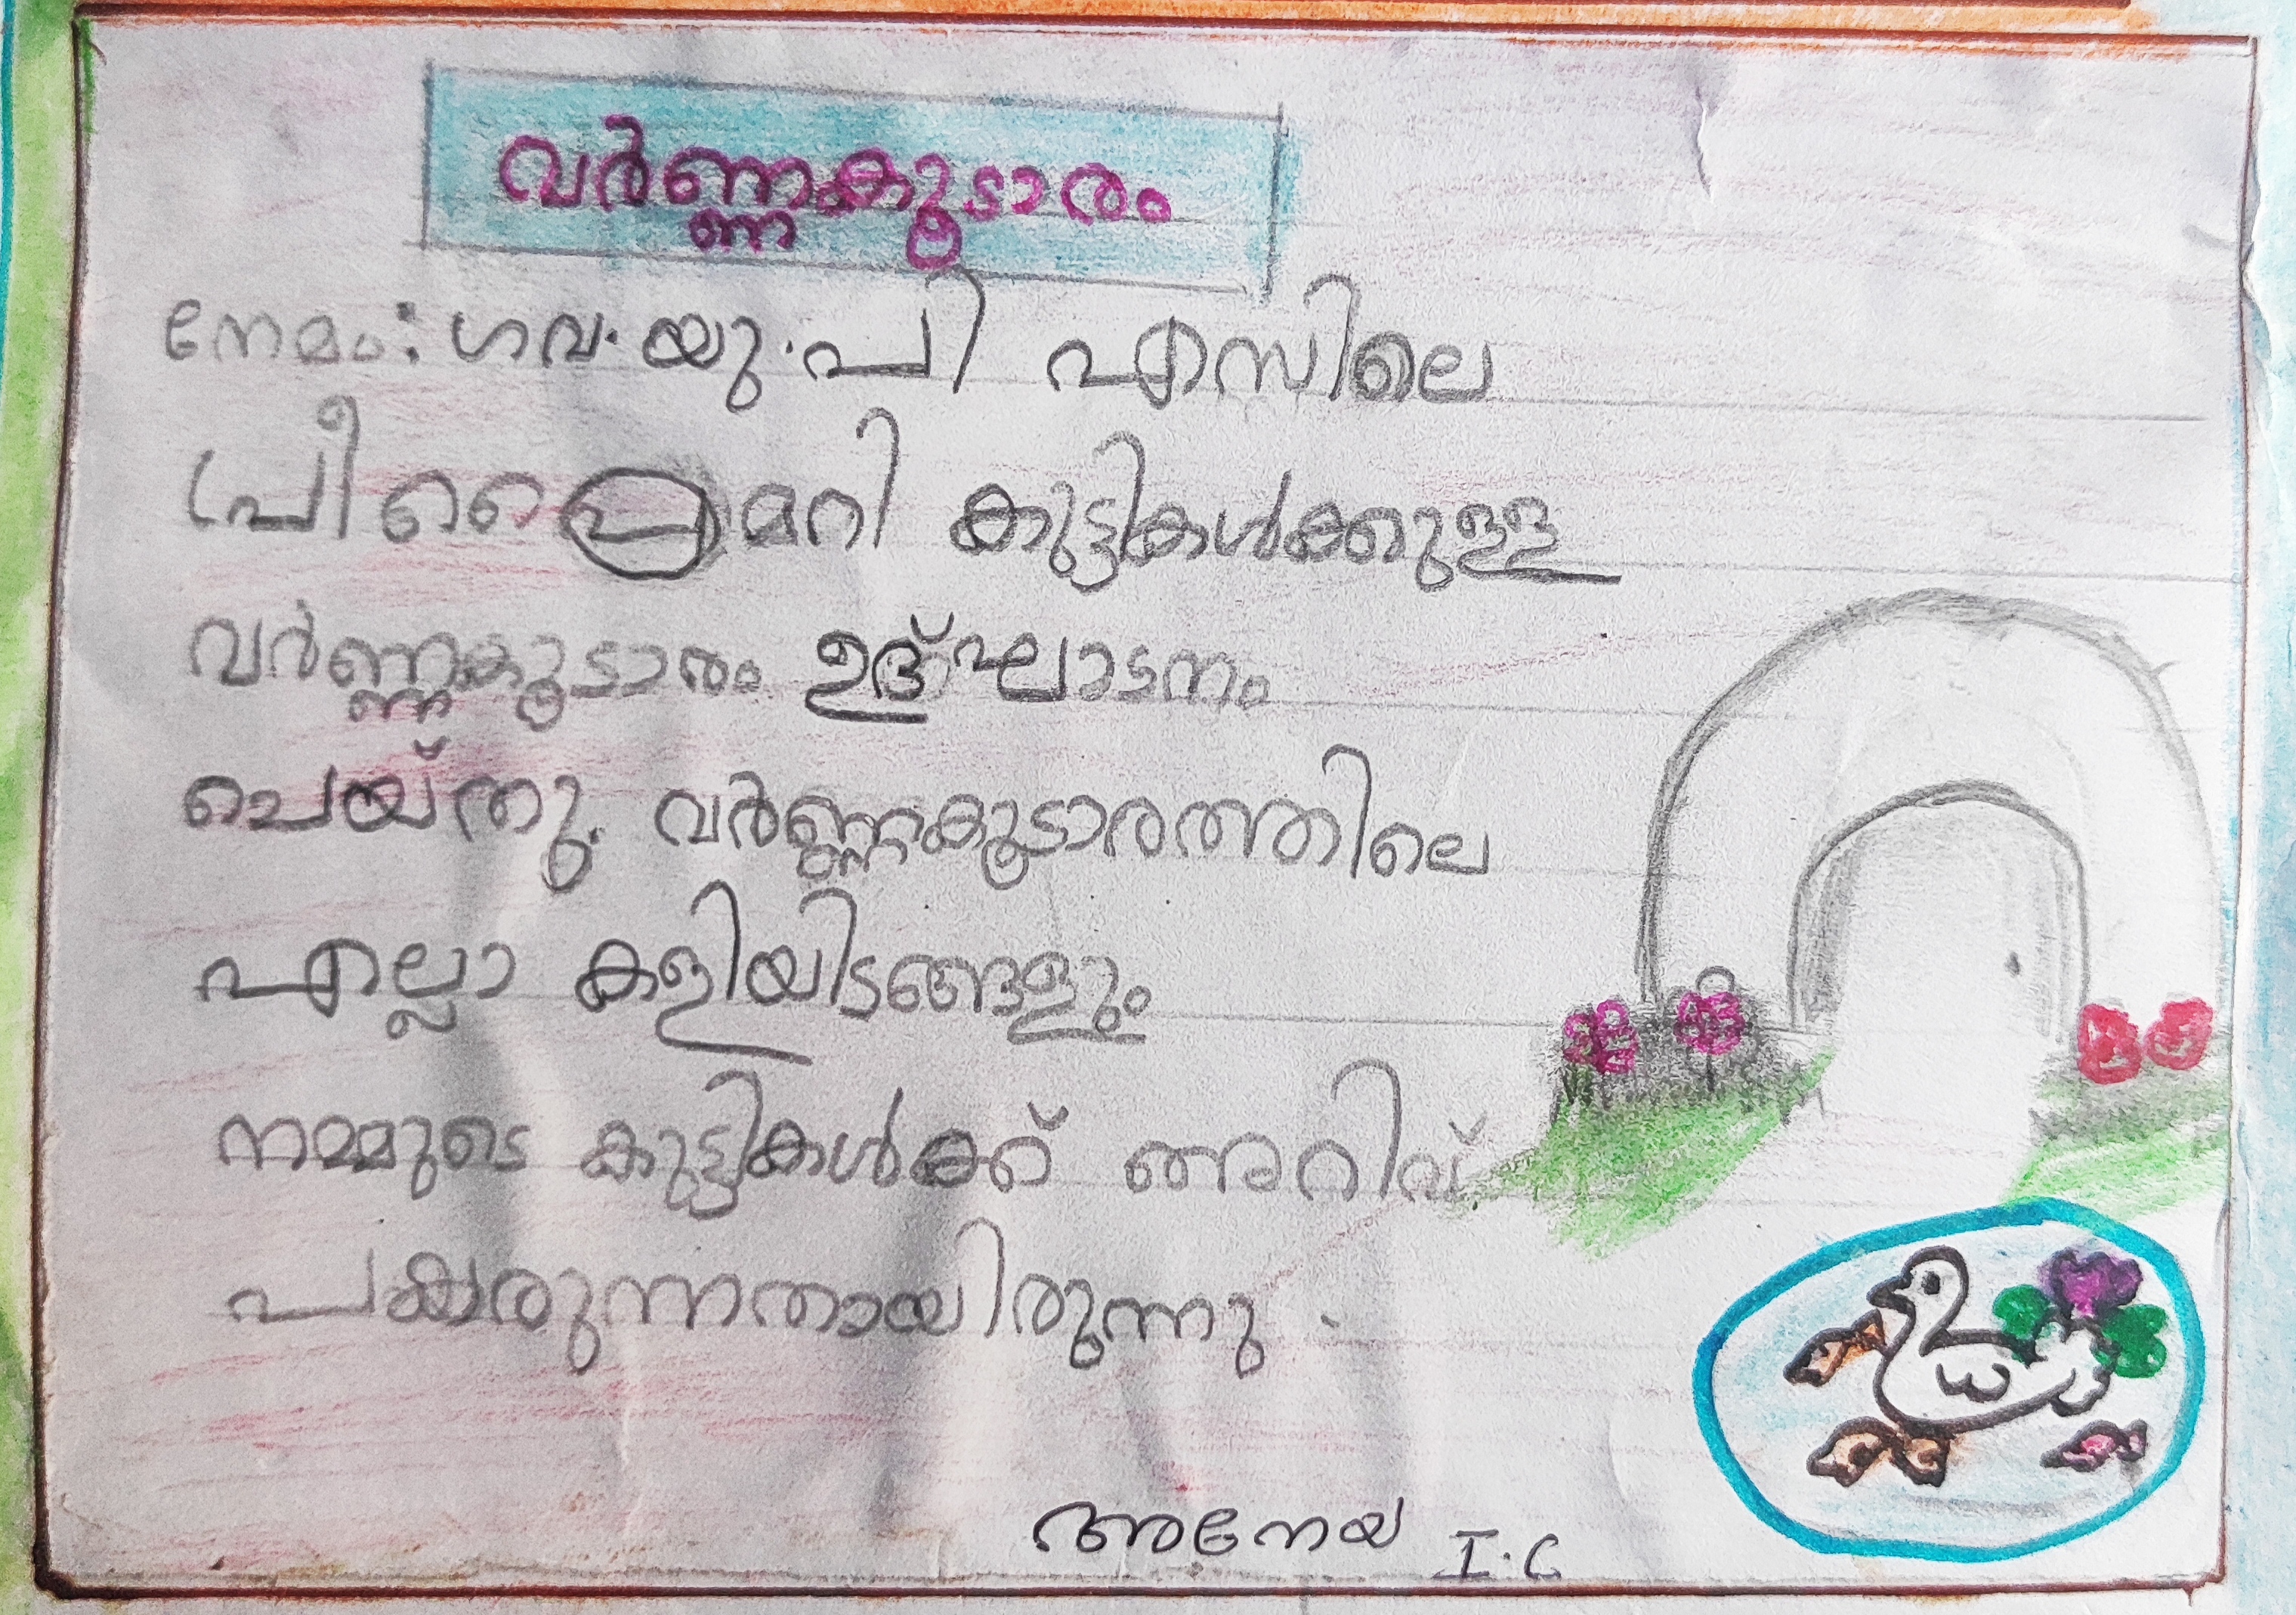 വർണ്ണകൂടാരം
നേമം: ഗവ. യു. പി എസിലെ
പ്രീ പ്രൈമറി കുട്ടികൾക്കുള്ള
വർണ്ണകൂടാരം ഉദ്ഘാടനം
ചെയ്തു. വർണ്ണകൂടാരത്തിലെ
എല്ലാ കളിയിടങ്ങളും
നമ്മുടെ കുട്ടികൾക്ക് അറിവ്
പകരുന്നതായിരുന്നു.
അനേയ I.C